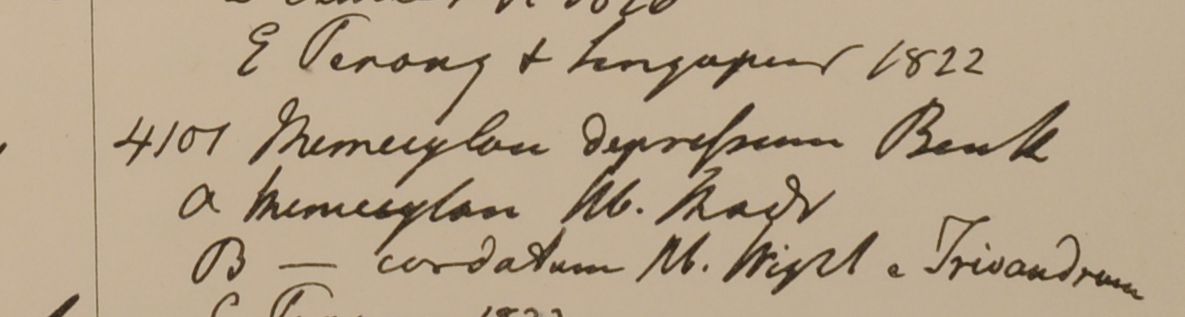 E Penang & Singapur 1822
4101 Memecylon depressum Benth
a Memecylon Hb. Madr
B — cordatum Hb. Wight e Trivandrum